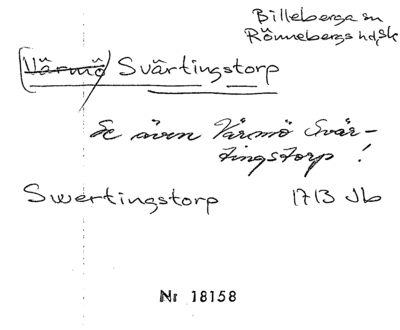 Billeberga sn
Rönnebergs hd, Sk
(Värmö) Svärtingstorp
Se även Värmö Svär-
tingstorp!
Swertingstorp 1713 Jb
Nr 18158